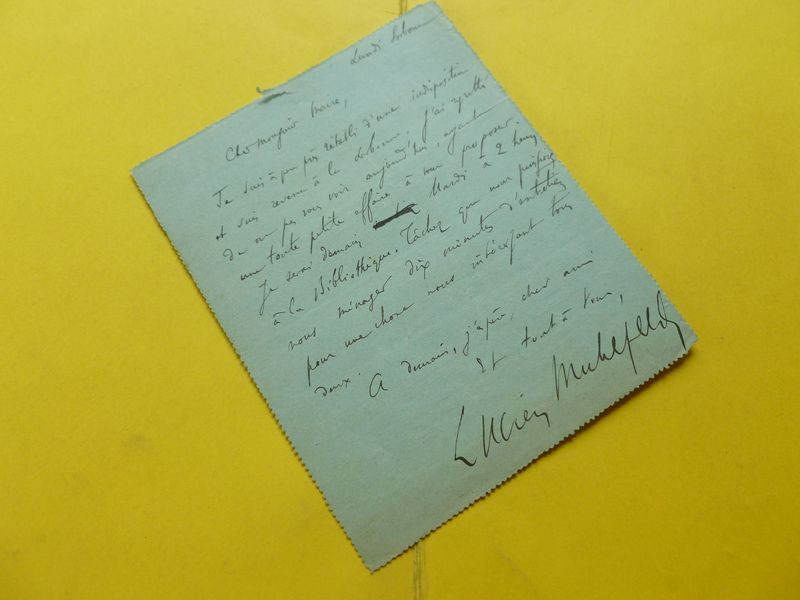 Lundi Sorbonne
Cher Monsieur
Je suis à peu près rétabli d'une indisposition
et suis revenu à la Sorbonne. J'ai regretté
de ne pas vous voir aujourd'hui, ayant
une toute petite affaire à vous proposer.
Je serai demain Mardi à 2 heures
à la Bibliothèque. Tâchez que nous puissions
nous ménager dix minutes d'entretien
pour une chose nous intéressant tous
deux. A demain, j'espère, cher ami
Et tout à vous,
Lucien Muhlfeld